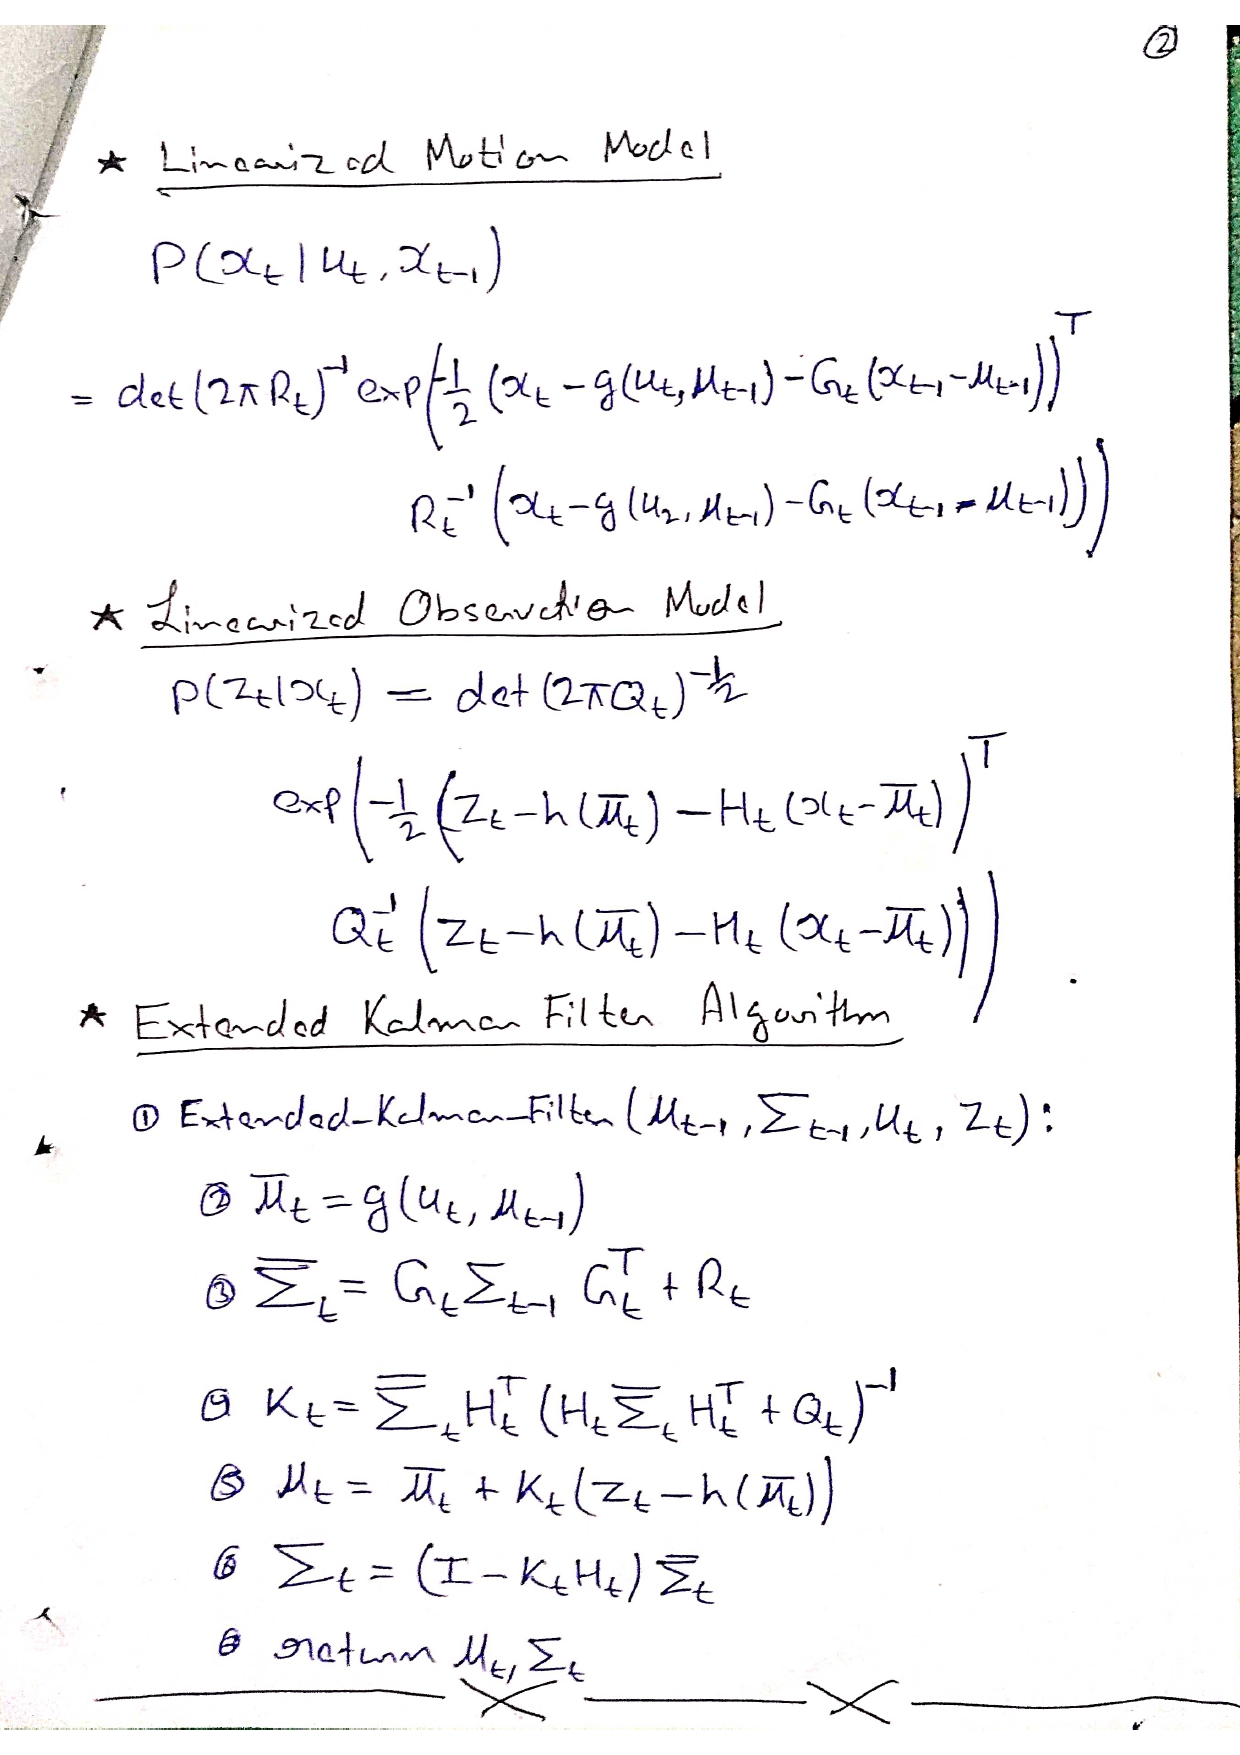 ②
★ Linearized Motion Model
P(x_t | u_t, x_{t-1})
= det(2πR_t)^{-1} exp(-1/2 (x_t - g(u_t, μ_{t-1}) - G_t(x_{t-1} - μ_{t-1}))^T
R_t^{-1} (x_t - g(u_2, μ_{t-1}) - G_t(x_{t-1} - μ_{t-1})))
★ Linearized Observation Model
p(z_t | x_t) = det(2πQ_t)^{-1/2}
exp(-1/2 (z_t - h(μ̅_t) - H_t(x_t - μ̅_t))^T
Q_t^{-1} (z_t - h(μ̅_t) - H_t(x_t - μ̅_t)))
★ Extended Kalman Filter Algorithm
① Extended-Kalman-Filter(μ_{t-1}, Σ_{t-1}, u_t, z_t):
② μ̅_t = g(u_t, μ_{t-1})
③ Σ̅_t = G_t Σ_{t-1} G_t^T + R_t
④ K_t = Σ̅_t H_t^T (H_t Σ̅_t H_t^T + Q_t)^{-1}
⑤ μ_t = μ̅_t + K_t(z_t - h(μ̅_t))
⑥ Σ_t = (I - K_t H_t) Σ̅_t
return μ_t, Σ_t